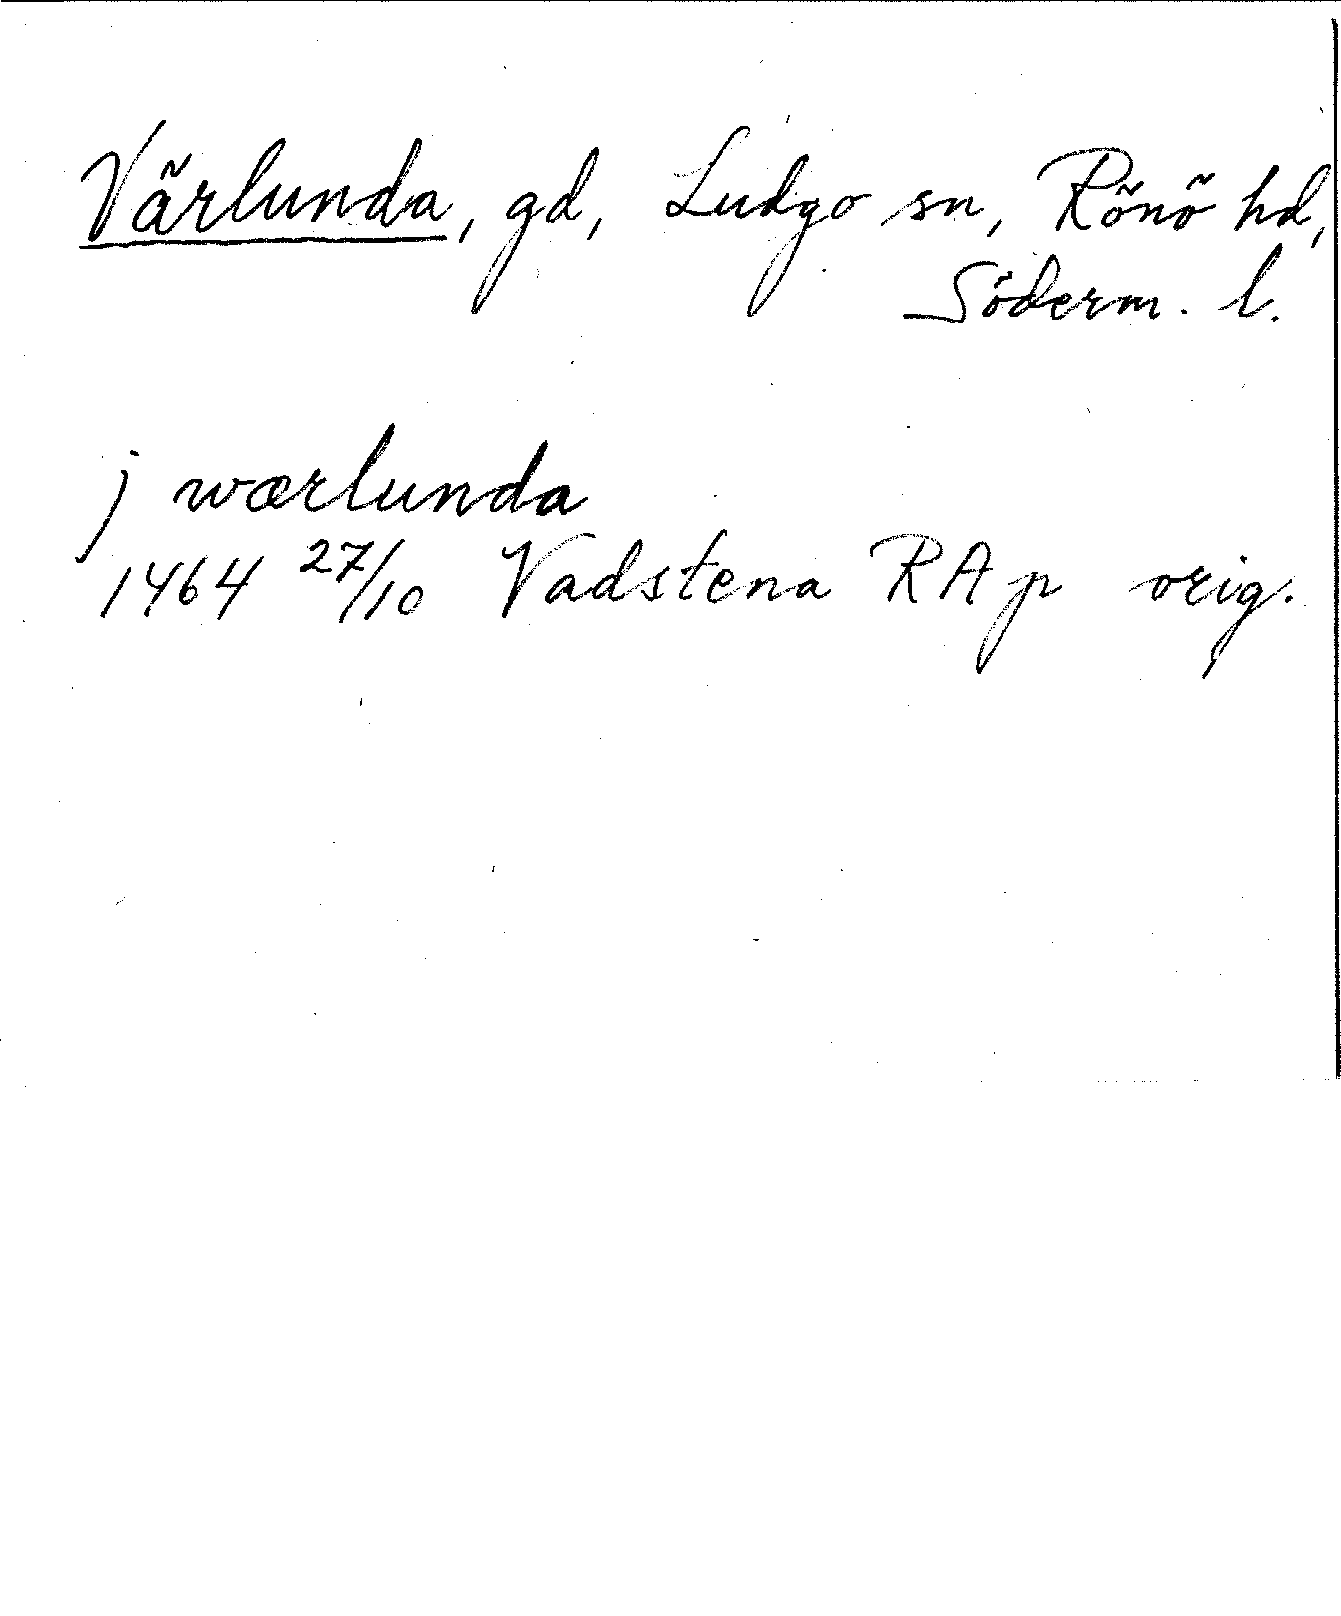 Värlunda, gd, Ludgo sn, Rönö hd,
Söderm. l.
j wærlunda
1464 27/10 Vadstena RAp orig.